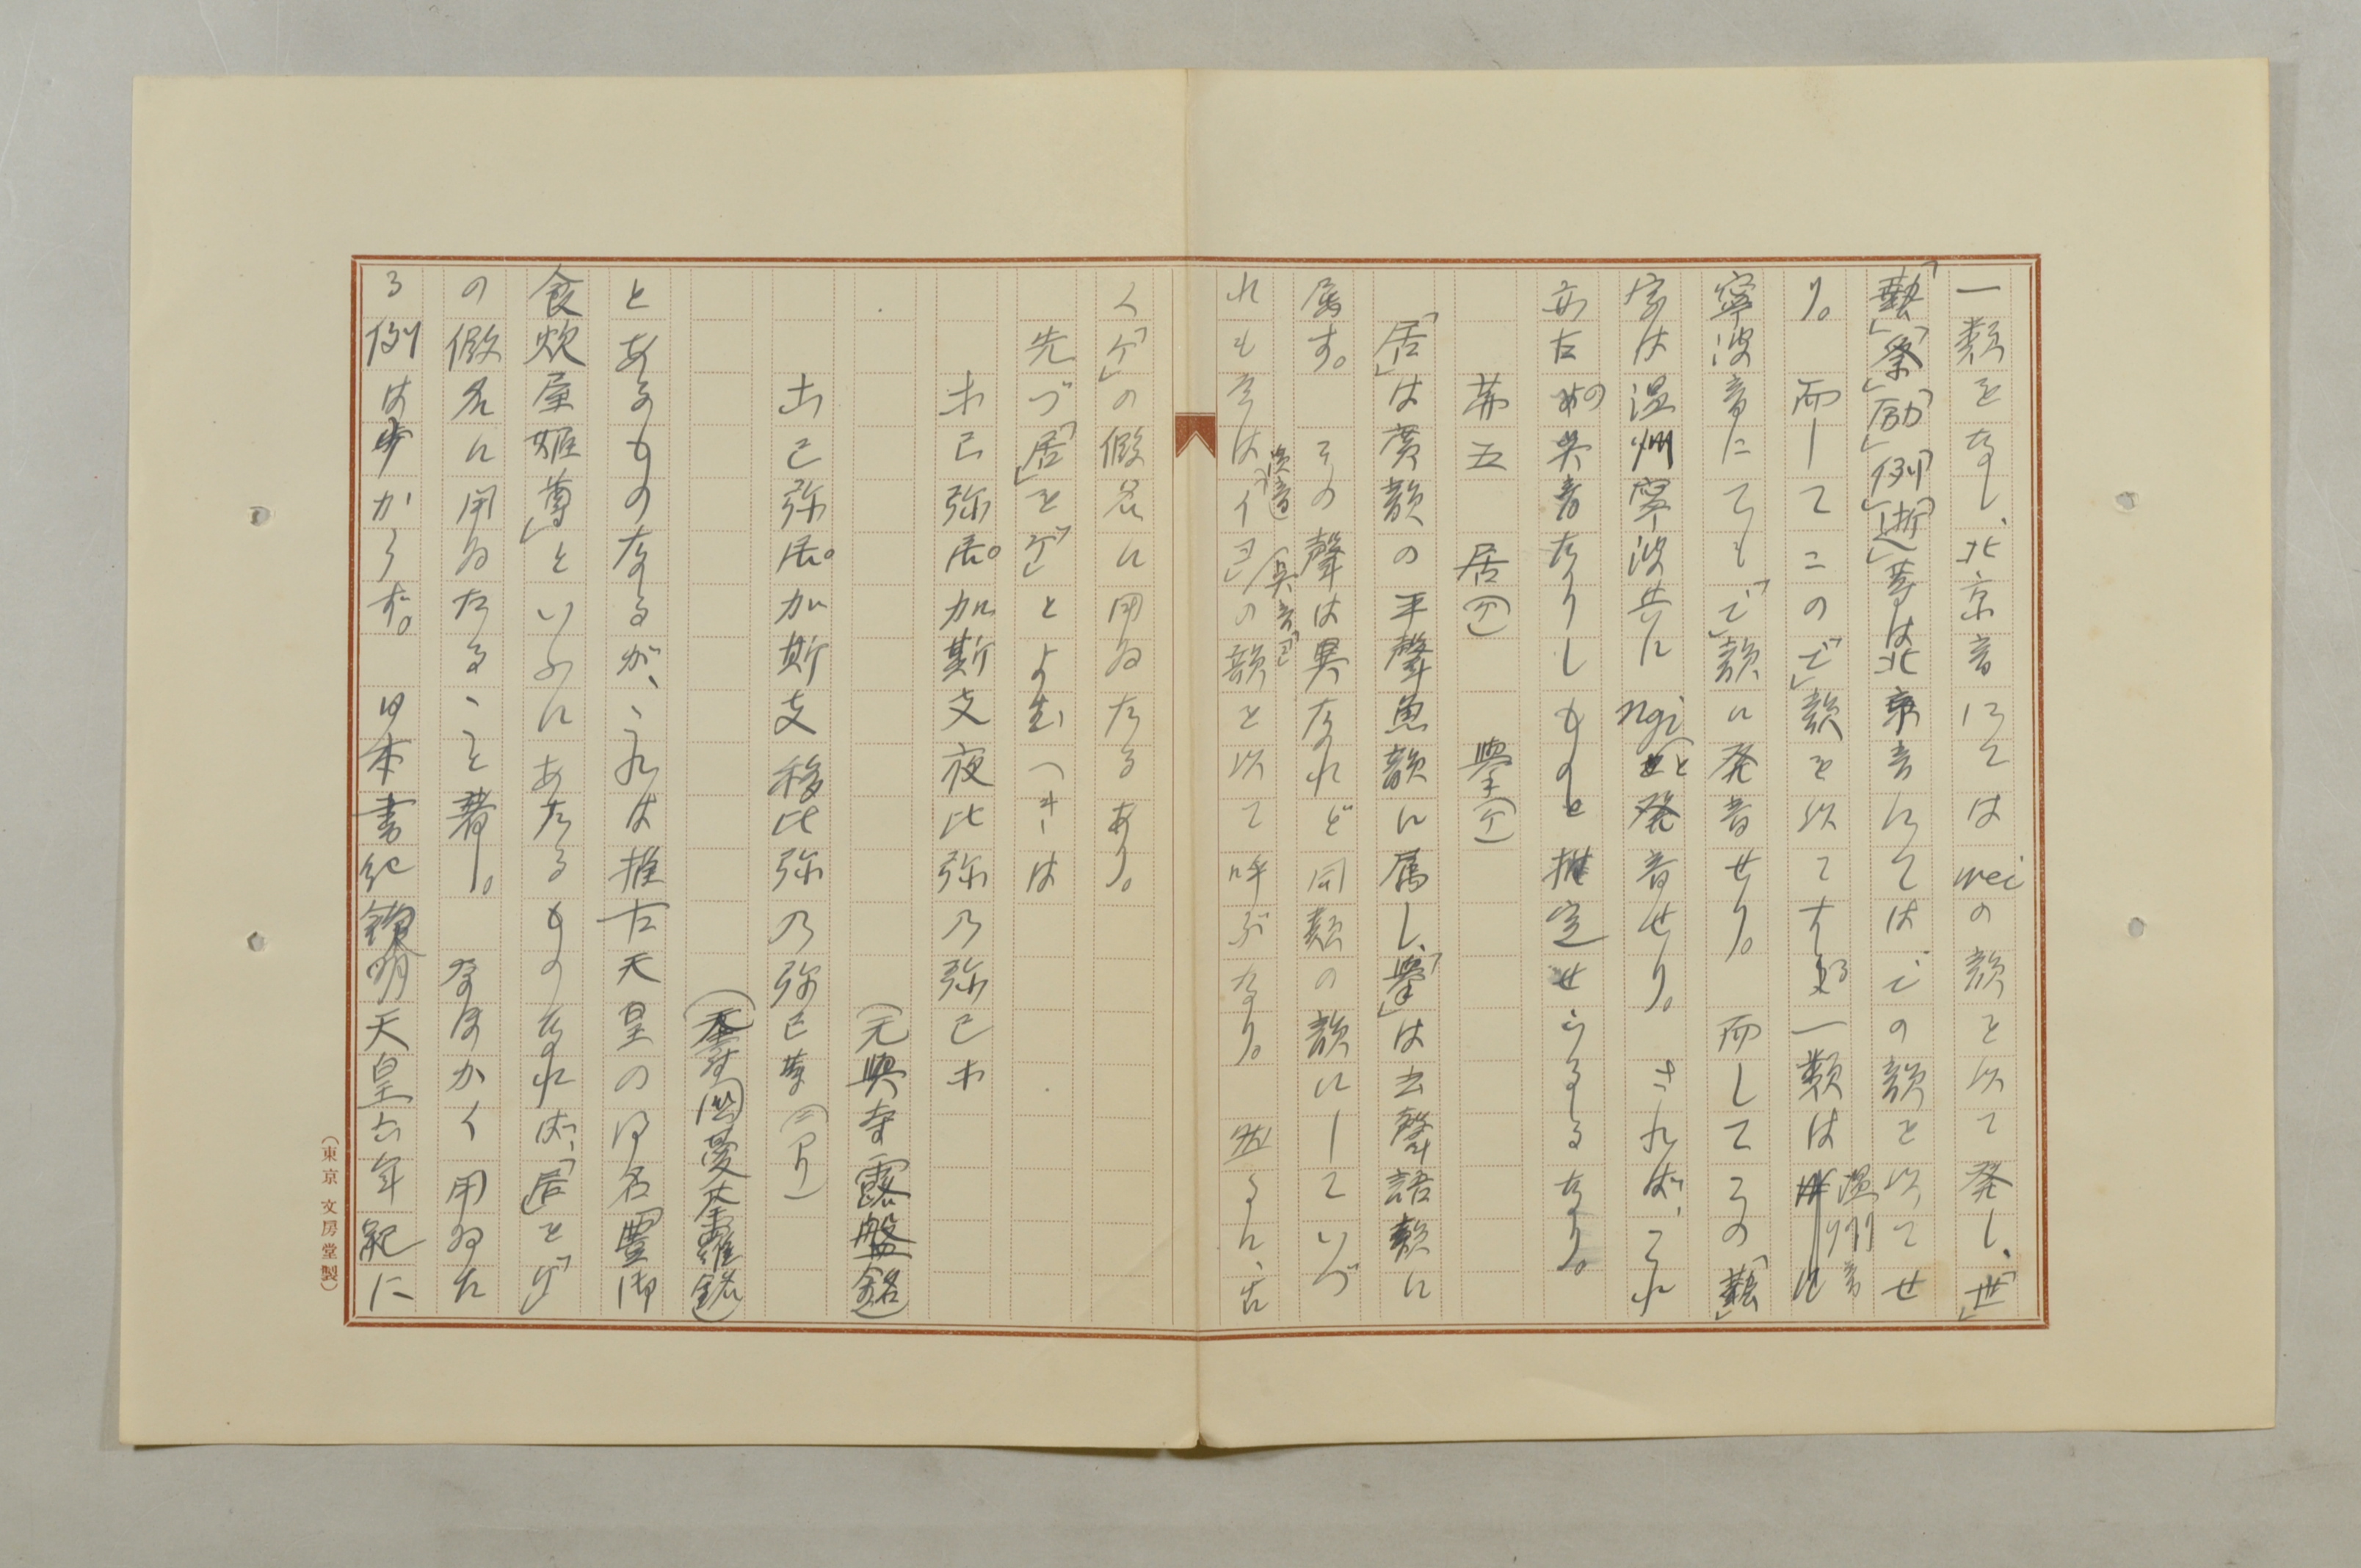 一類をなし、北京音にてはweiの韻を以て発し、「世」
「藝」「祭」「励」「例」「逝」等は北京音にてはでの韻を以てせ
り。而してこの「で」韻を以てする一類は温州音
寧波音にても「で」韻に発音せり。而してその「藝」
字は温州寧波共にngiと発音せり。されば、これ
亦古の呉音なりしものと推定せらるるなり。
第五 居(ケ) 擧(ケ)
「居」は廣韻の平聲魚韻に属し、「擧」は去聲語韻に
属す。その聲は異なれど同類の韻にしていづ
れも今は漢音「イヨ」呉音「ヨ」の韻を以て呼ぶなり。然るに、古
く「ケ」の假名に用ゐたるあり。
先づ「居」を「ケ」とよむべきは
未已弥居。加斯支夜比弥乃弥已未
(元興寺露盤銘)
止已弥居。加斯支移比弥乃弥已等(二アリ)
(天壽国曼荼羅銘)
とあるものなるが、これは推古天皇の御名豊御
食炊屋姫尊」といふにあたるものなれば、「居」を「ケ」
の假名に用ゐたること著し。なほかく用ゐた
る例は少からず。日本書紀欽明天皇六年紀に
(東京 文房堂製)